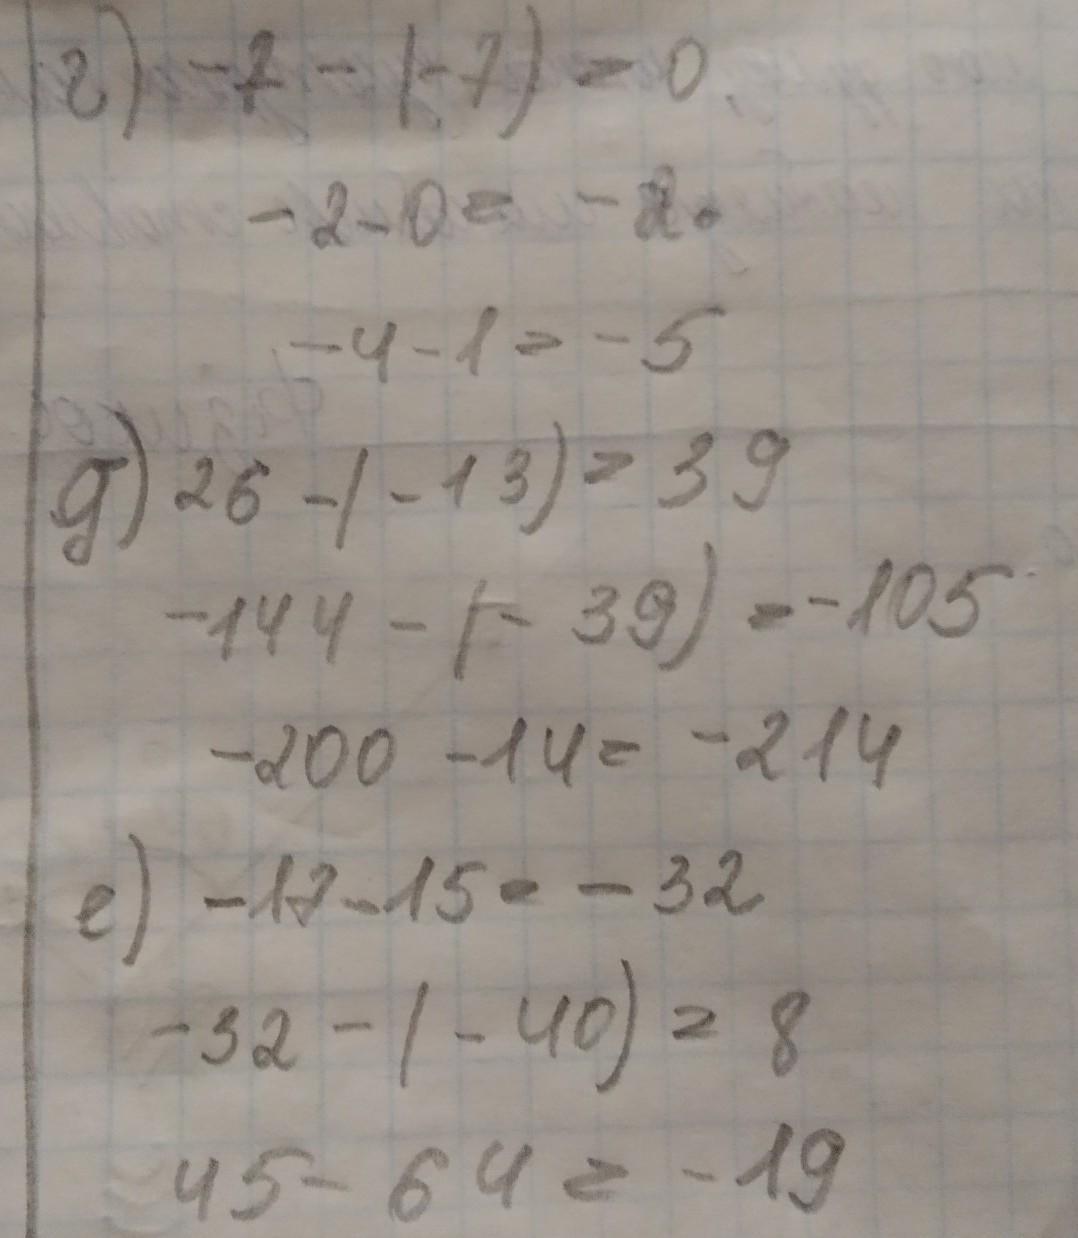 г) -7 - (-7) = 0
-2 - 0 = -2.
-4 - 1 = -5
д) 26 - (-13) = 39
-144 - (-39) = -105
-200 - 14 = -214
е) -17 - 15 = -32
-32 - (-40) = 8
45 - 64 = -19